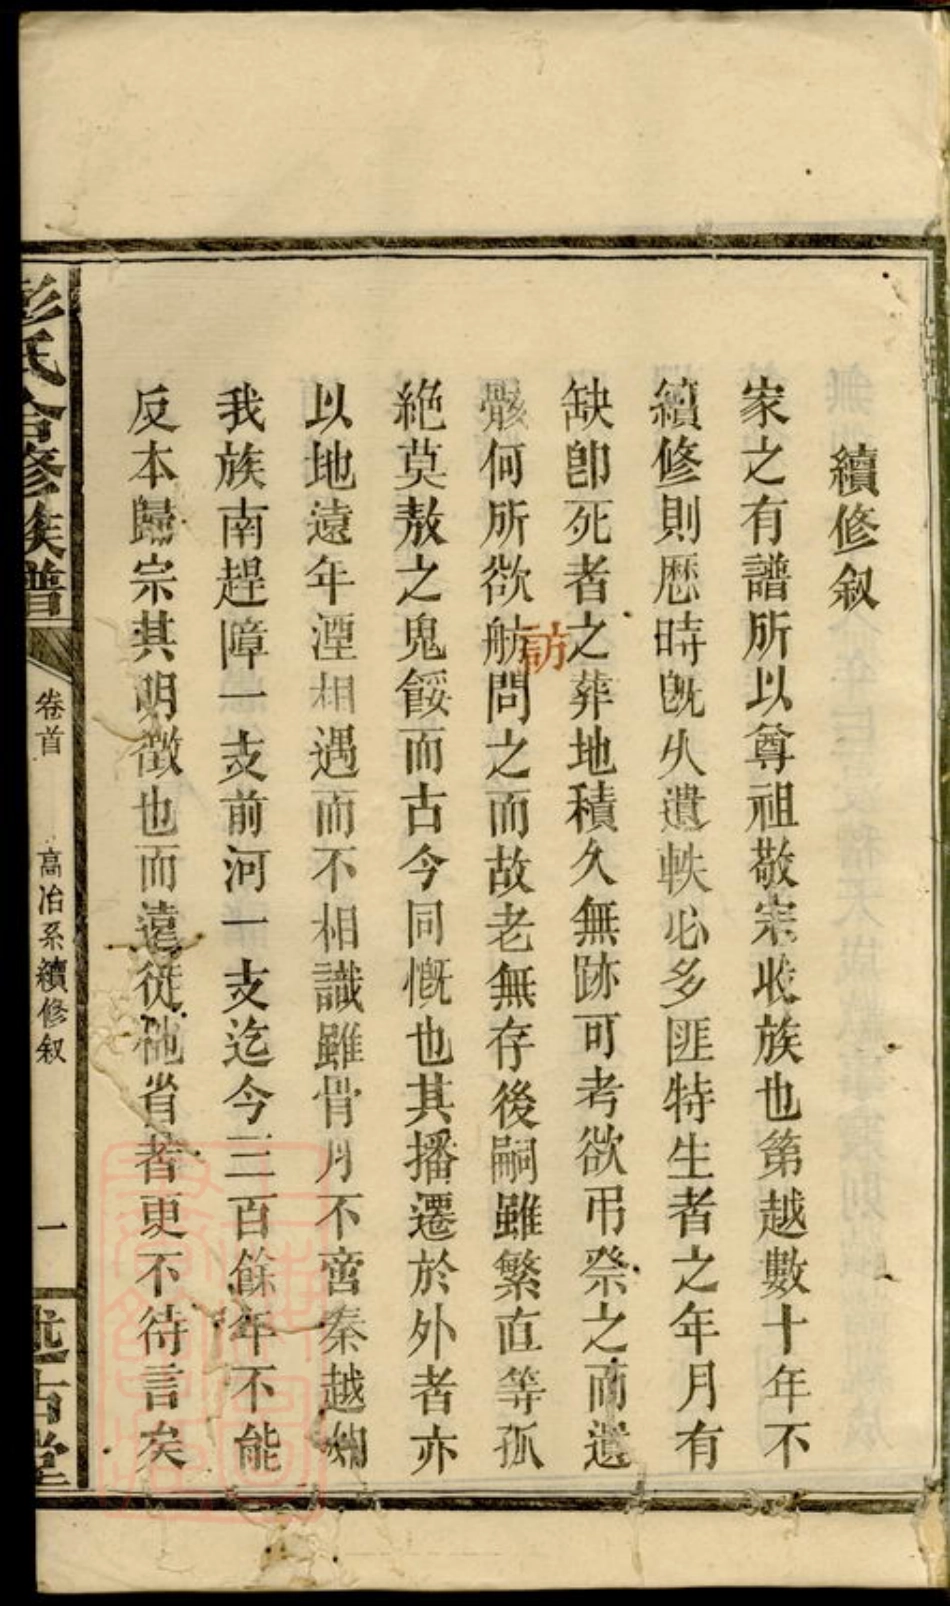 續修叙
家之有譜所以尊祖敬宗收族也第越數十年不
續修則歷時既久遺軼必多匪特生者之年月有
缺卽死者之葬地積久無跡可考欲弔祭之而遺
骸何所欲舫問之而故老無存後嗣雖繁直等孤
訪
絶莫敖之鬼餒而古今同慨也其播遷於外者亦
以地遠年湮相遇而不相識雖骨月不啻秦越
我族南趕障一支前河一支迄今三百餘年不能
反本歸宗其明徵也而遠徙他省者更不待言矣
彭氏合修族譜
卷首
高冶系續修叙
一
述古堂